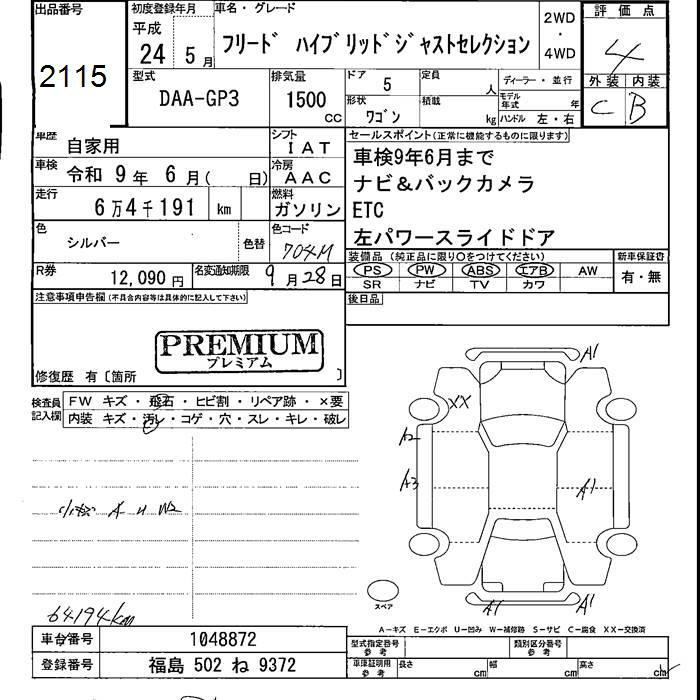 出品番号
2115
初度登録年月
平成
24 5月
車名・グレード
フリード ハイブリッドジャストセレクション
2WD
・
4WD
評価点
4
外装 内装
C B
型式
DAA-GP3
排気量
1500
CC
ドア
5
定員
人
形状
ワゴン
積載
kg
ディーラー・並行
モデル
年式
年
ハンドル 左・右
車歴
自家用
シフト
IAT
車検
令和 9年 6月( 日)
冷房
AAC
走行
6万4千191 km
燃料
ガソリン
色
シルバー
色替
色コード
704M
R券
12,090円
名変通知期限
9月28日
セールスポイント(正常に機能するものに限ります)
車検9年6月まで
ナビ&バックカメラ
ETC
左パワースライドドア
装備品 (純正品に限り○をつけてください)
PS PW ABS エアB AW
SR ナビ TV カワ
新車保証書
有・無
後日品
注意事項申告欄(不具合内容等は具体的に記入して下さい)
PREMIUM
プレミアム
修復歴 有〔箇所 〕
検査員
記入欄
FW キズ・飛石・ヒビ割・リペア跡・×要
内装 キズ・汚レ・コゲ・穴・スレ・キレ・破レ
A1
XX
A2
A3
A1
A1
A1
スペア
64194km
A-キズ E-エクボ U-凹み W-補修跡 S-サビ C-腐食 XX-交換済
車台番号
1048872
登録番号
福島 502 ね 9372
型式指定番号
参考
類別区分番号
参考
車庫証明用
参考
長さ
cm
幅
cm
高さ
cm